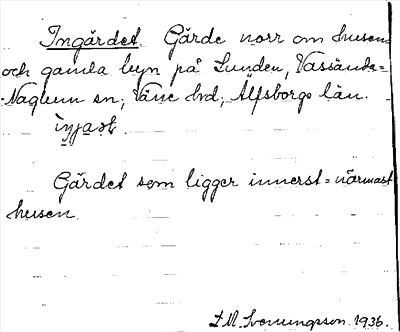 Ingärdet. Gärde norr om husen
och gamla byn på Lunden, Vassända-
Naglum sn, Väne hd, Älfsborgs län.
Gärdet som ligger innerst = närmast
husen.
1936.